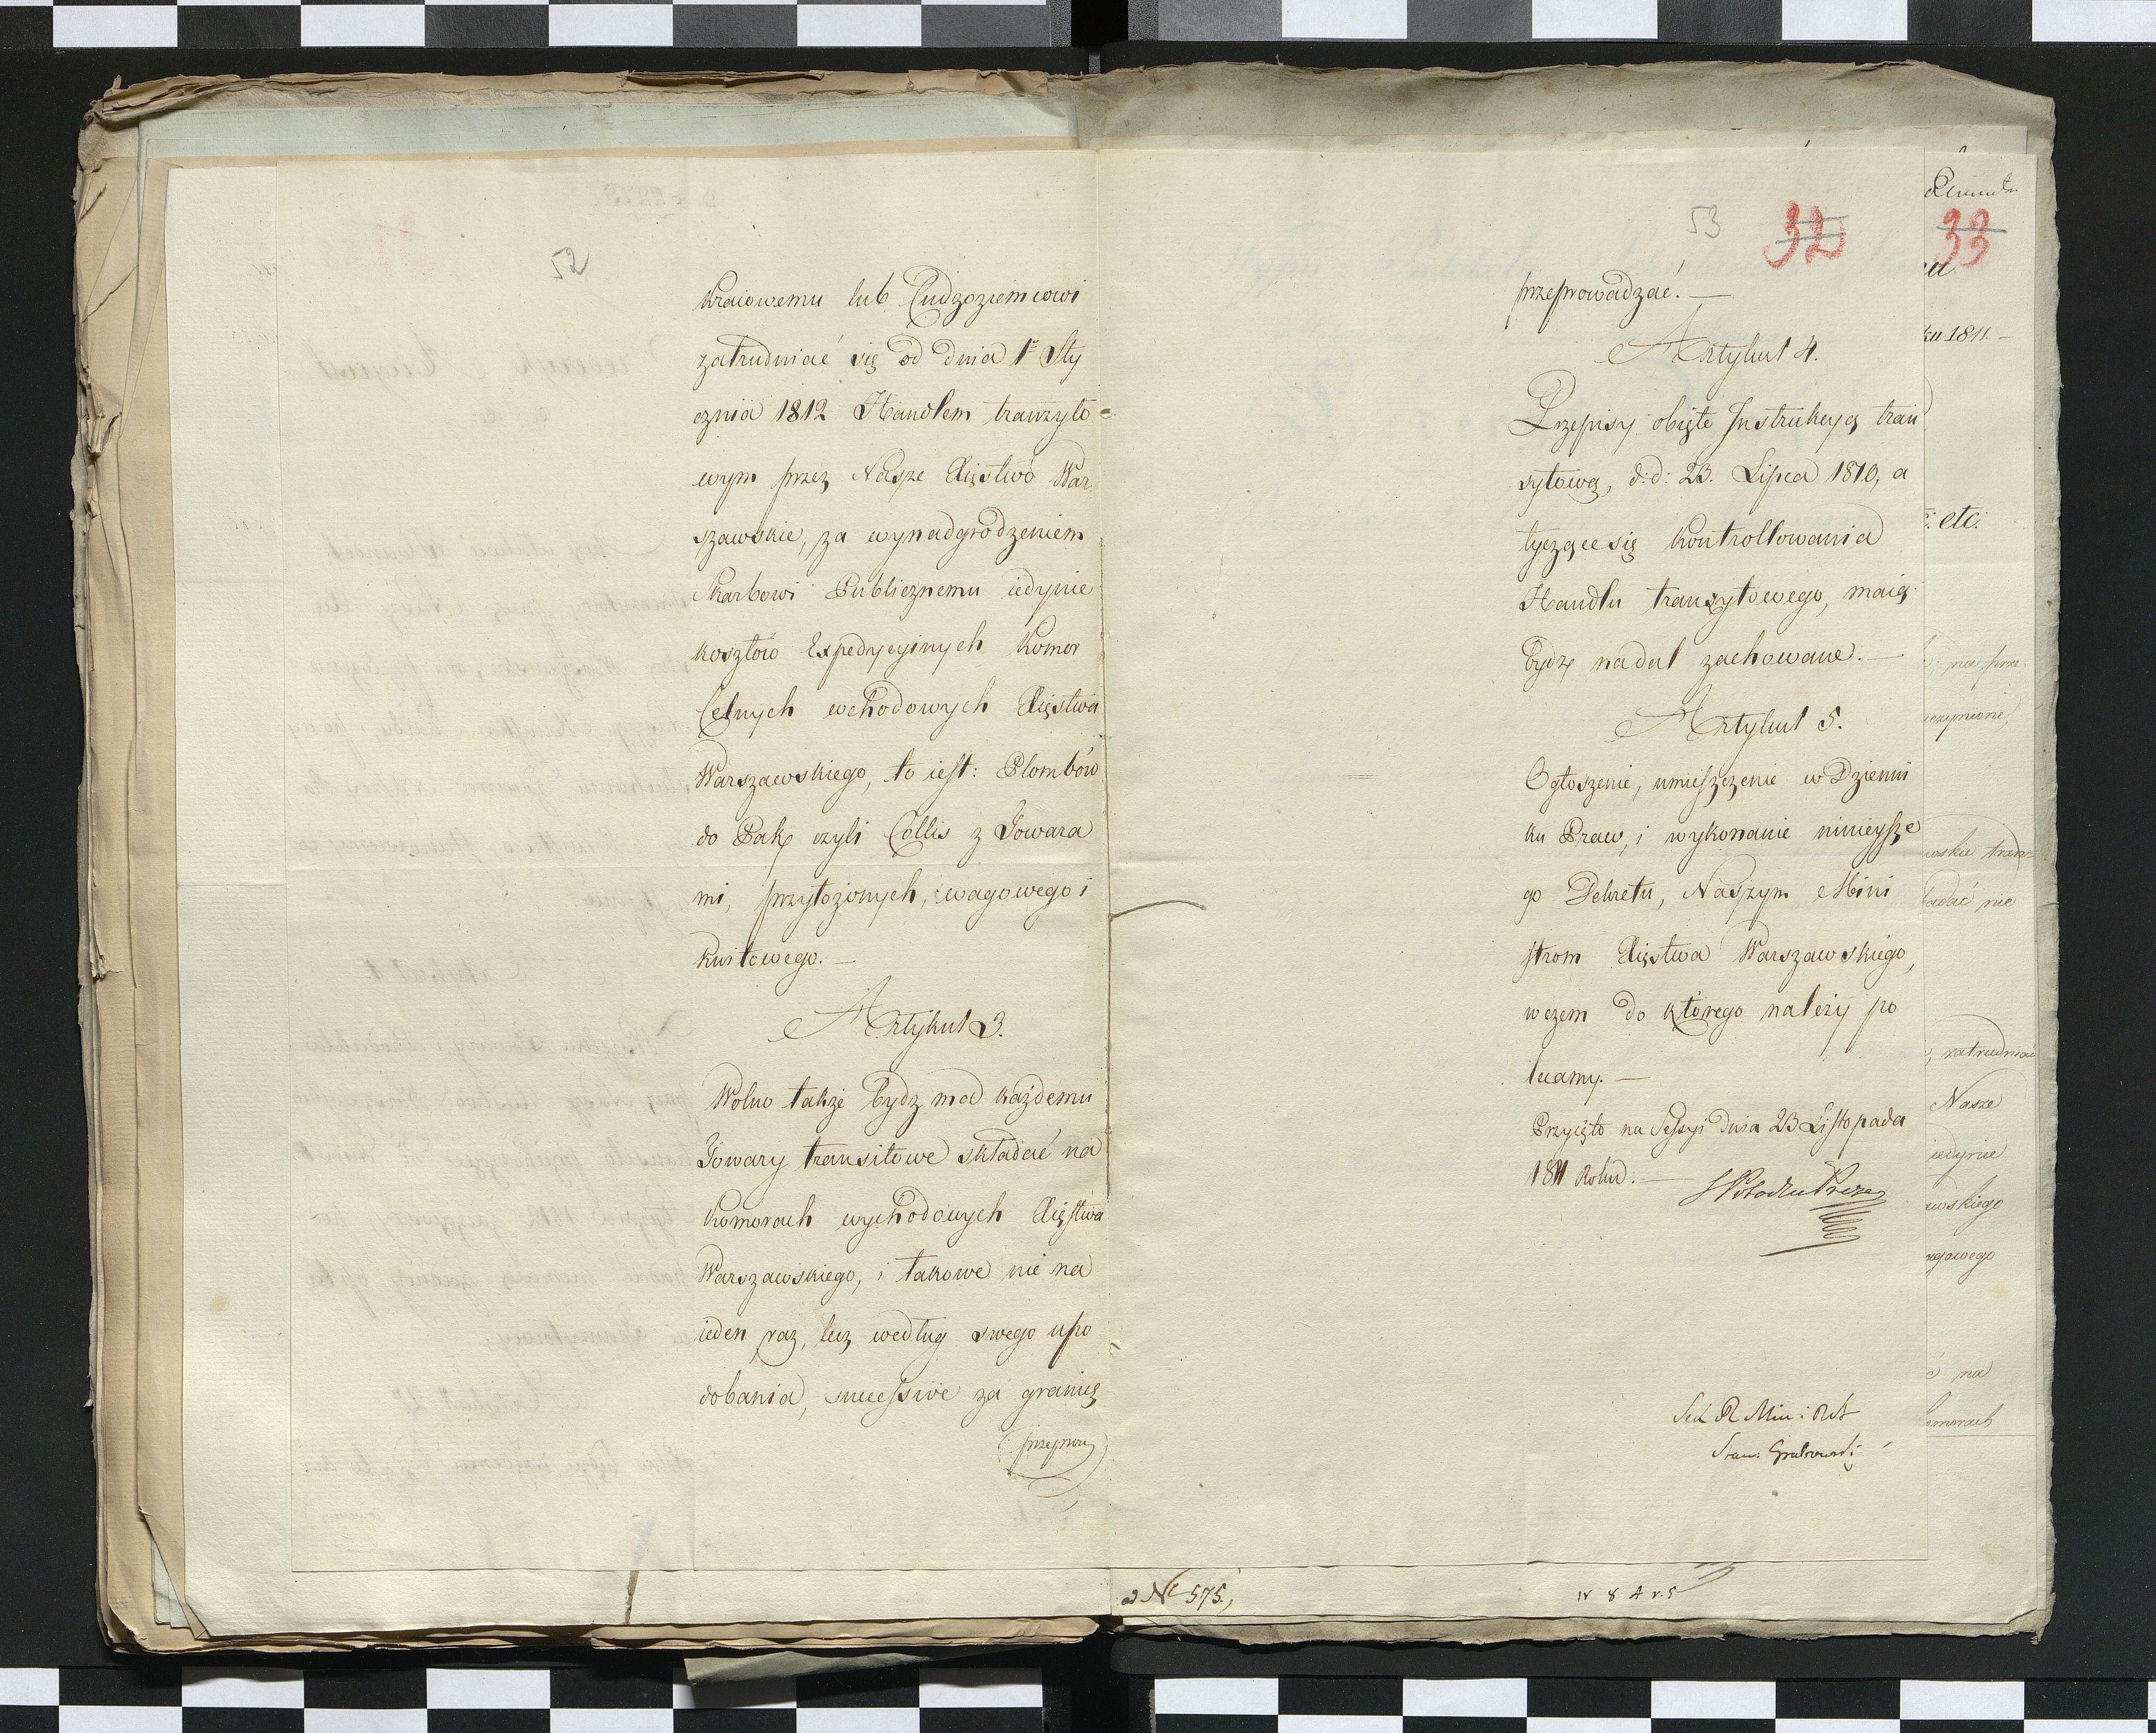 52
kraiowemu lub Cudzoziemcowi
zatrudniać się od dnia 1º Sty
cznia 1812 Handlem tranzyto
wym przez Nasze Xięstwo War
szawskie, za wynadgrodzeniem
Skarbowi Publicznemu iedynie
kosztów Expedycyinych Komor
Celnych wchodowych Xięstwa
Warszawskiego, to iest: Plombów
do Pak czyli Collis z Towara
mi, przyłożonych, wagowego i
kwitowego. —
Artykuł 3.
Wolno także bydz ma każdemu
Towary transitowe składać na
Komorach wychodowych Xięstwa
Warszawskiego, i takowe nie na
ieden raz, lecz według swego upo
dobania, successive za granicę
53 32
przeprowadzać. —
Artykuł 4.
Przepisy obięte Instrukcyą tran
sytową, d: d: 23. Lipca 1810, a
tyczące się kontrollowania
Handlu tranzytowego, maią
bydz nadal zachowane. —
Artykuł 5.
Ogłoszenie, umieszczenie w Dzienni
ku Praw, i wykonanie ninieysze
go Dekretu, Naszym Mini
strom Xięstwa Warszawskiego,
w czem do którego należy po
lecamy. —
Przyięto na Sessyi dnia 23 Listopada
1811 Roku. —
Sek R Min: RSt
Stan: Grabowski
ad Nº 575,
33
ku 1811. —
etc:
zatrudniać
Nasze
iedynie
wskiego
agowego
na
omorach